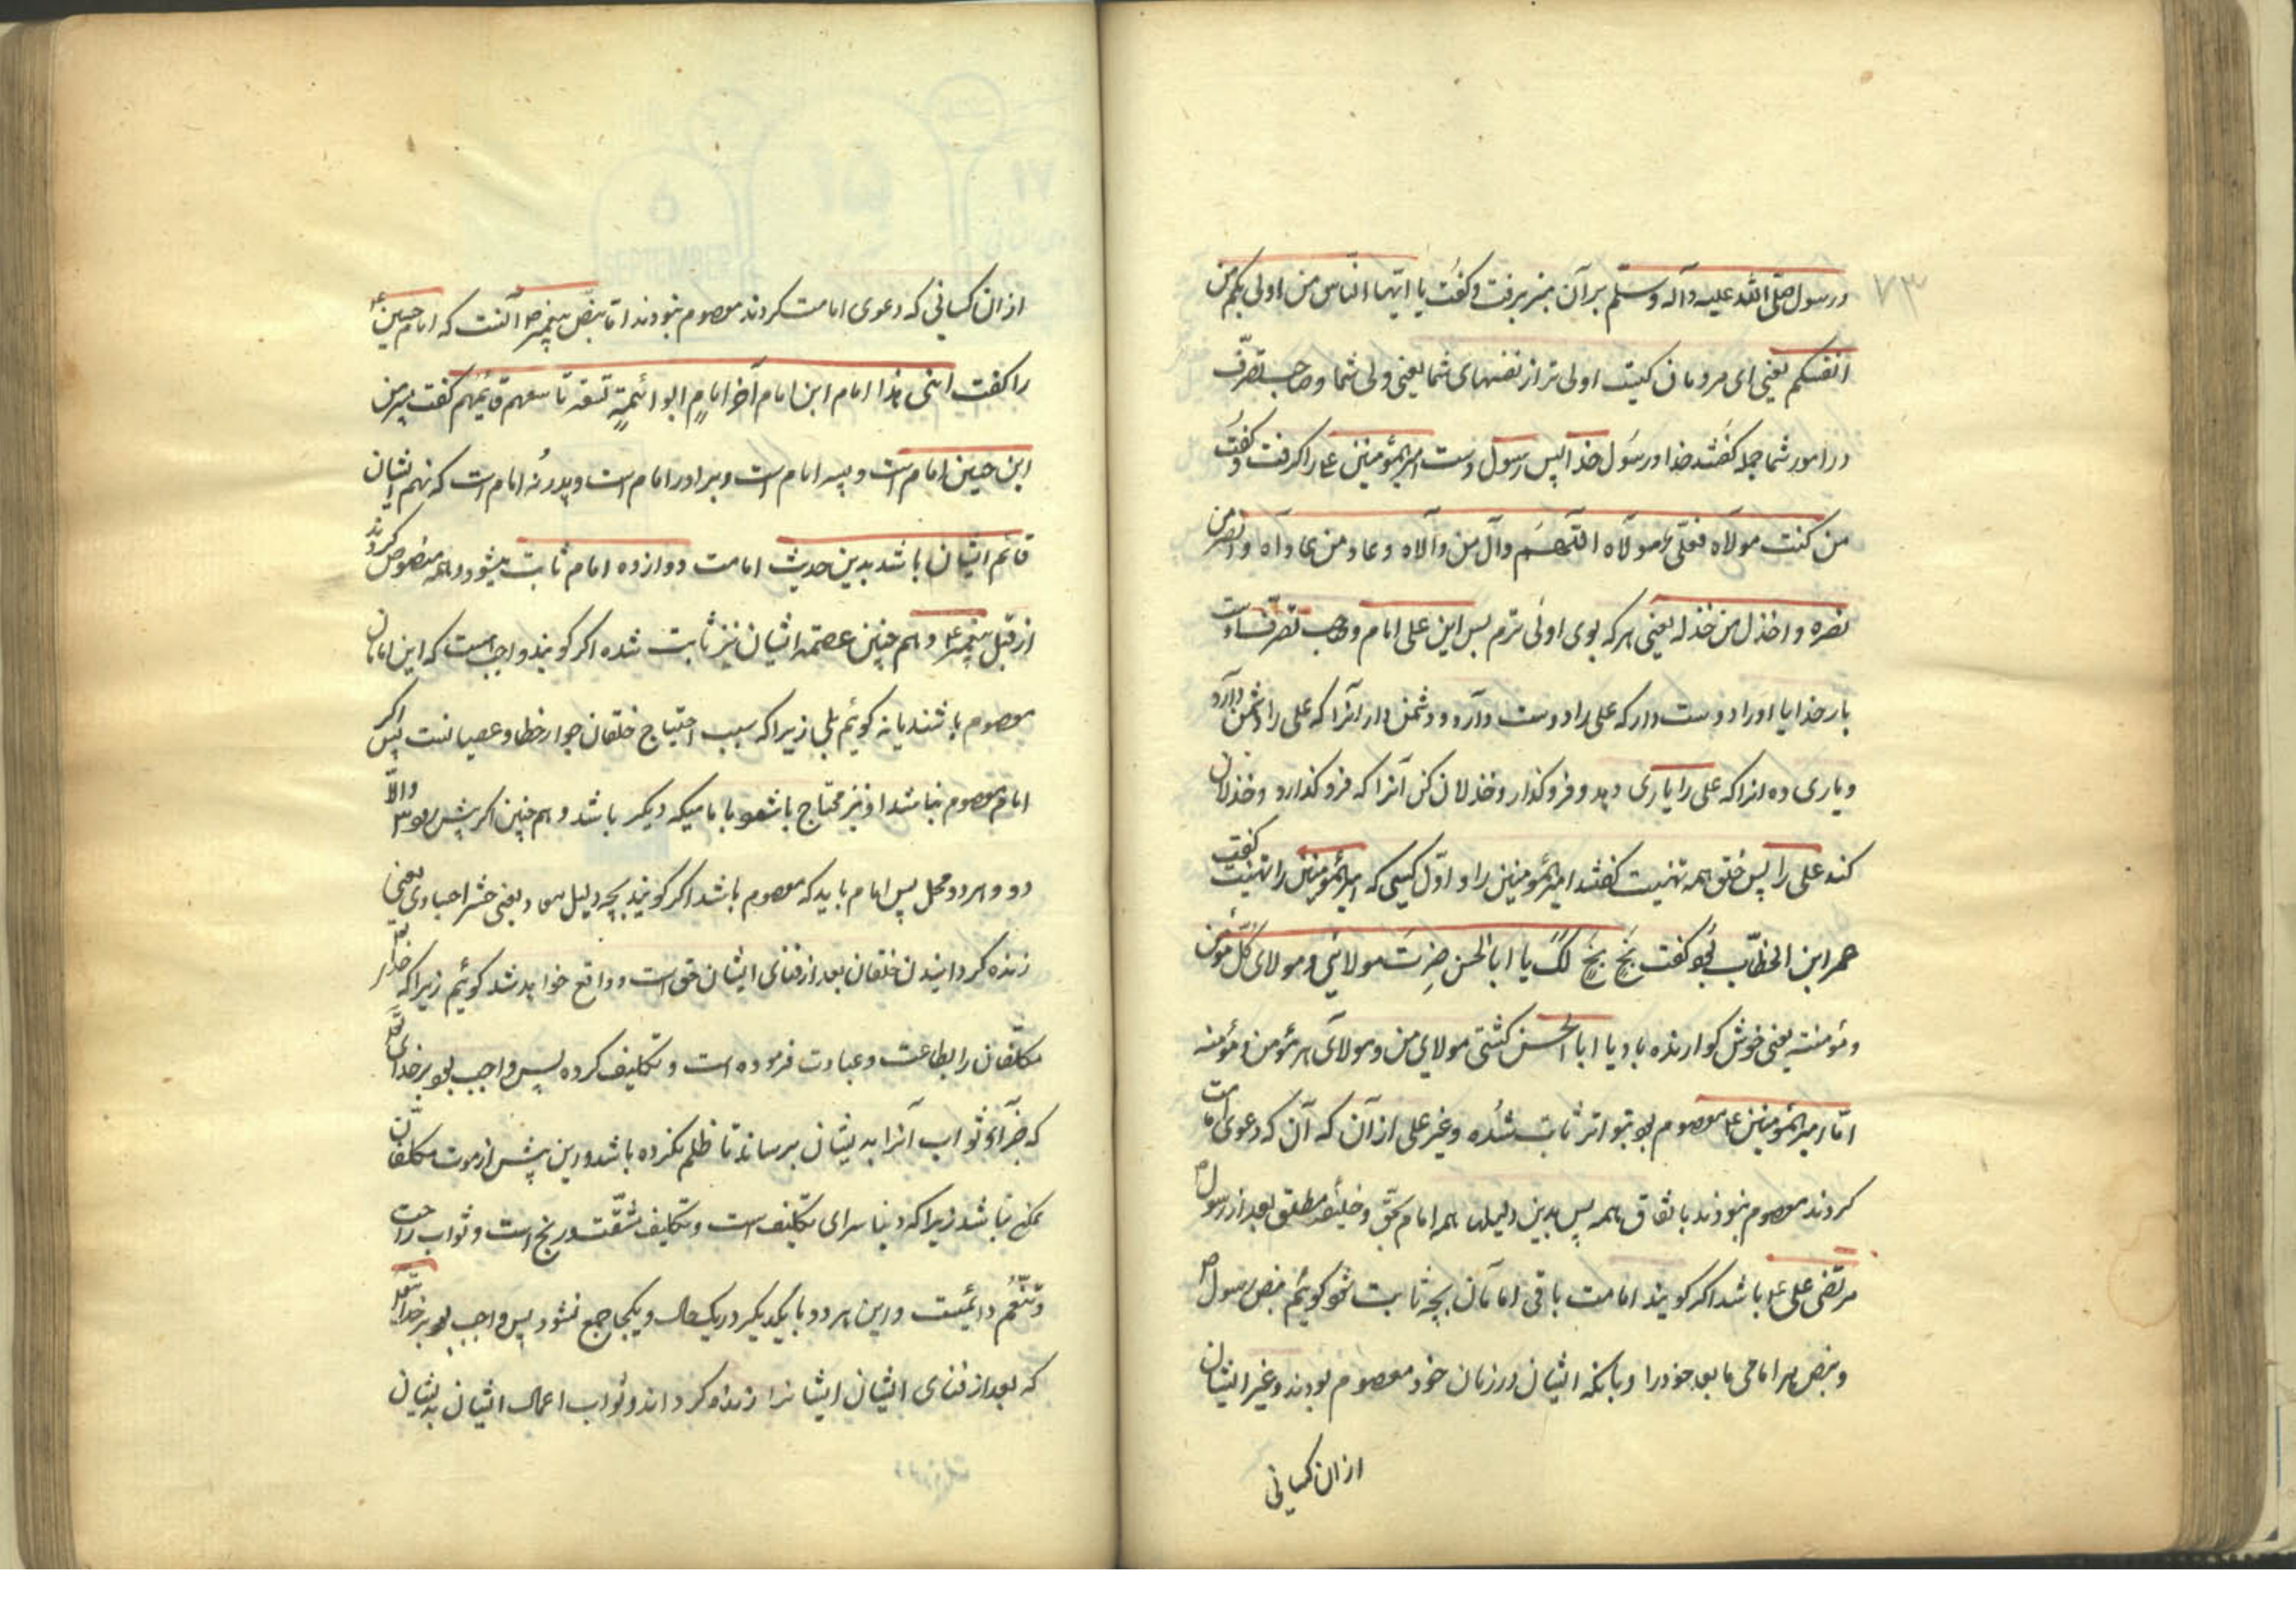 ۷۳
ورسول صلّی الله علیه وآله وسلّم برآن منبر برفت وکفت یا ایّها النّاس من اولی بکم من
انفسکم یعنی ای مردمان کیست اولی تر از نفسهای شما یعنی ولی شما وصاحب تصرّف
در امور شما جمله کفتند خدا ورسول خدا پس رسول دست امیرالمؤمنین ع را کرفت وکفت
من کنت مولاه فعلی مولاه اللّهمّ وال من والاه وعاد من عاداه وانصر من
نصره واخذل من خذله یعنی هر که بوی اولی ترم پس این علی امام وصاحب تصرّف اوست
بار خدایا اورا دوست دار که علی را دوست دارد ودشمن دار آنرا که علی را دشمن دارد
ویاری ده انرا که علی را یاری دهد وفرو کذار وخذلان کن آنرا که فرو کذارد وخذلان
کند علی را پس خلق همه تهنیت کفتند امیرالمؤمنین را واوّل کسی که امیرالمؤمنین را تهنیت کفت
عمر ابن الخطّاب بود کفت بَخٍ بَخٍ لک یا ابا الحسن صرت مولائی ومولای کلّ مؤمن
ومؤمنته یعنی خوش کوارنده باد یا ابا الحسن کشتی مولای من ومولای هر مؤمن ومؤمنه
امّا امیرالمؤمنین ع معصوم بود بتواتر ثابت شده وغیر علی از آن که آن که دعوی امامت
کردند معصوم نبودند باتّفاق همه پس بدین دلیلها همه امام بحقّ وخلیفه مطلق بعد از رسول ص
مرتضی علی ع باشد اکر کویند امامت باقی امامان بچه ثابت شود کوئیم بنص رسول ص
وبنص هر امامی مابعد خودرا وبانکه ایشان در زمان خود معصوم بودند وغیر ایشان
از ان کسانی
از ان کسانی که دعوی امامت کردند معصوم نبودند امّا بنصّ پیغمبر ص آنست که امام حسین ع
را کفت ابنی هذا امام ابن امام آخر امامٍ ابو ائمةٍ تسعة تاسعهم قائمهم کفت پسر من
این حسین امام است وپسر امام است وبرادر امام است وپدر نُه امام است که نهم ایشان
قائم ایشان باشد بدین حدیث امامت دوازده امام ثابت میشود وهمه منصوص کردند
از قبل پیغمبر ع وهم چنین عصمت ایشان نیز ثابت شده اکر کویند واجبست که این امامان
معصوم باشند یا نه کوئیم بلی زیرا که سبب احتیاج خلقان جواز خطا وعصیانست پس اکر
امام معصوم نباشد او نیز محتاج باشد با مامیکه دیکر باشد وهم چنین اکر پیش رود والّا
دور وهر دو محل پس امام باید که معصوم باشد اکر کویند بچه دلیل معاد یعنی حشر اجسادی یعنی
زنده کردانیدن خلقان بعد از فنای ایشان حق است وواقع خواهد شد کوئیم زیرا که خدا
مکلّفان را بطاعت وعبادت فرموده است وتکلیف کرده پس واجب بود بر خدای تعالی
که جزای وثواب آنرا بدیشان برساند تا ظلم نکرده باشد واین پیش از موت مکلّفان
ممکن نباشد زیرا که دنیا سرای تکلیف است وتکلیف مشقّت ورنج است وثواب راحت
وتنعّم دائمیست واین هر دو با یکدیکر در یک حال ویکجا جمع نشود پس واجب بود بر خدا تعالی
که بعد از فنای ایشان ایشانرا زنده کرداند وثواب اعمال ایشان بدیشان